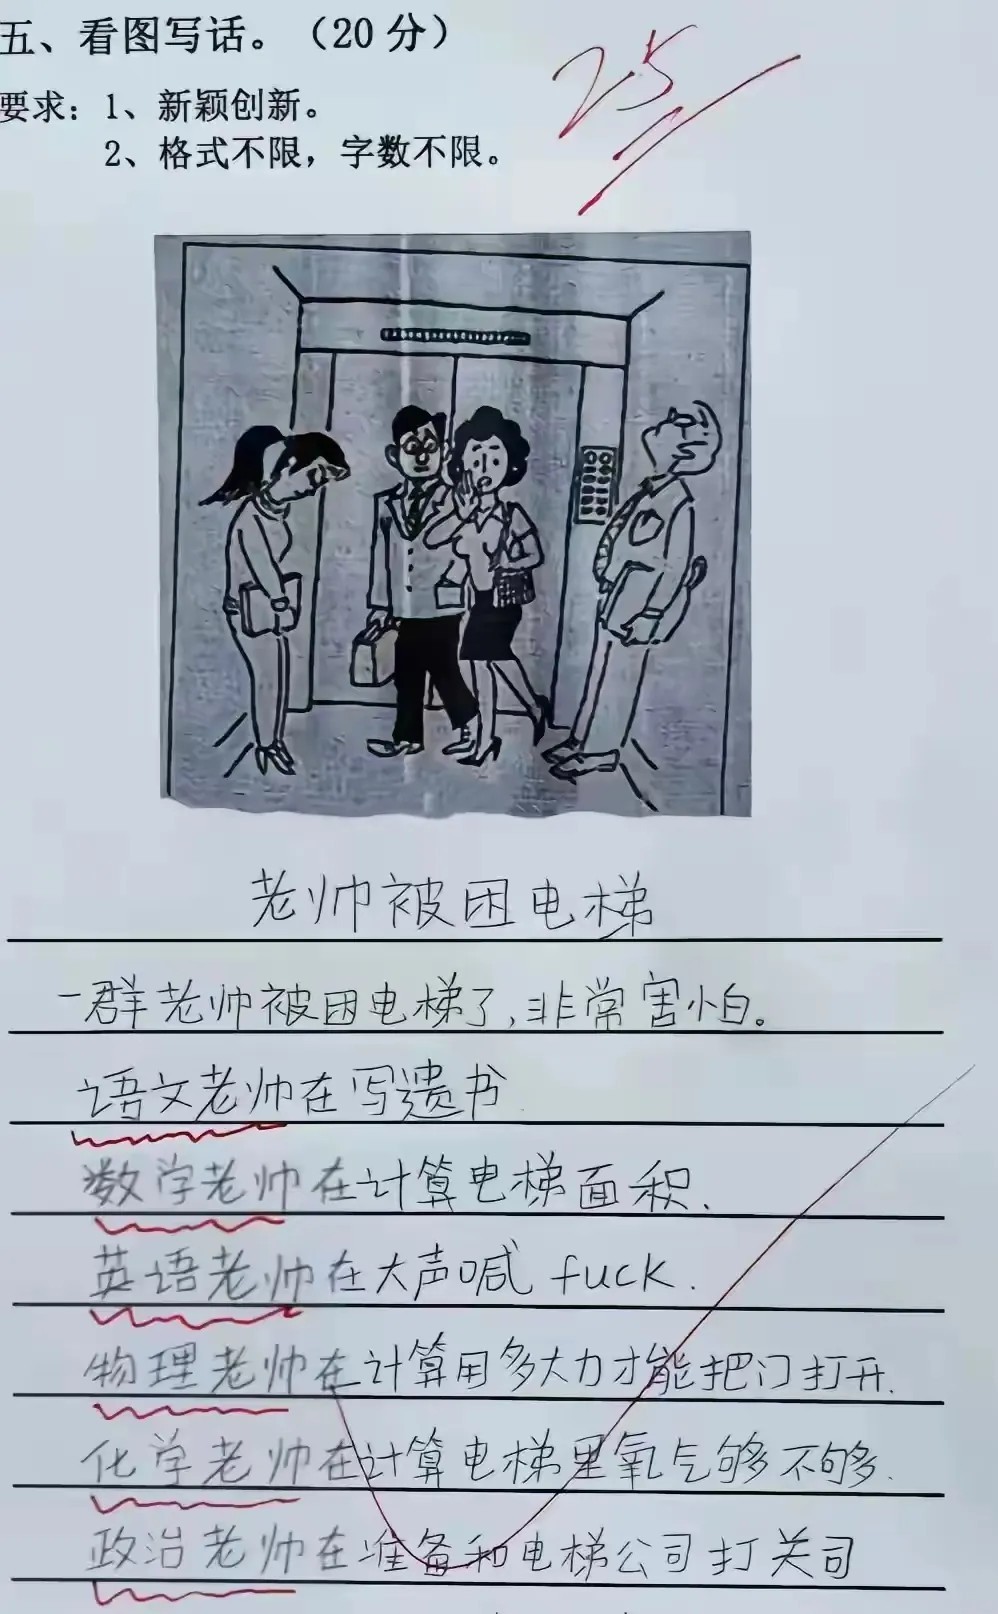 五、看图写话。（20分）
25
要求：1、新颖创新。
2、格式不限，字数不限。
老帅被困电梯
一群老帅被困电梯了,非常害怕。
语文老帅在写遗书
数学老帅在计算电梯面积.
英语老帅在大声喊 fuck.
物理老帅在计算用多大力才能把门打开.
化学老帅在计算电梯里氧气够不够.
政治老帅在准备和电梯公司打关司